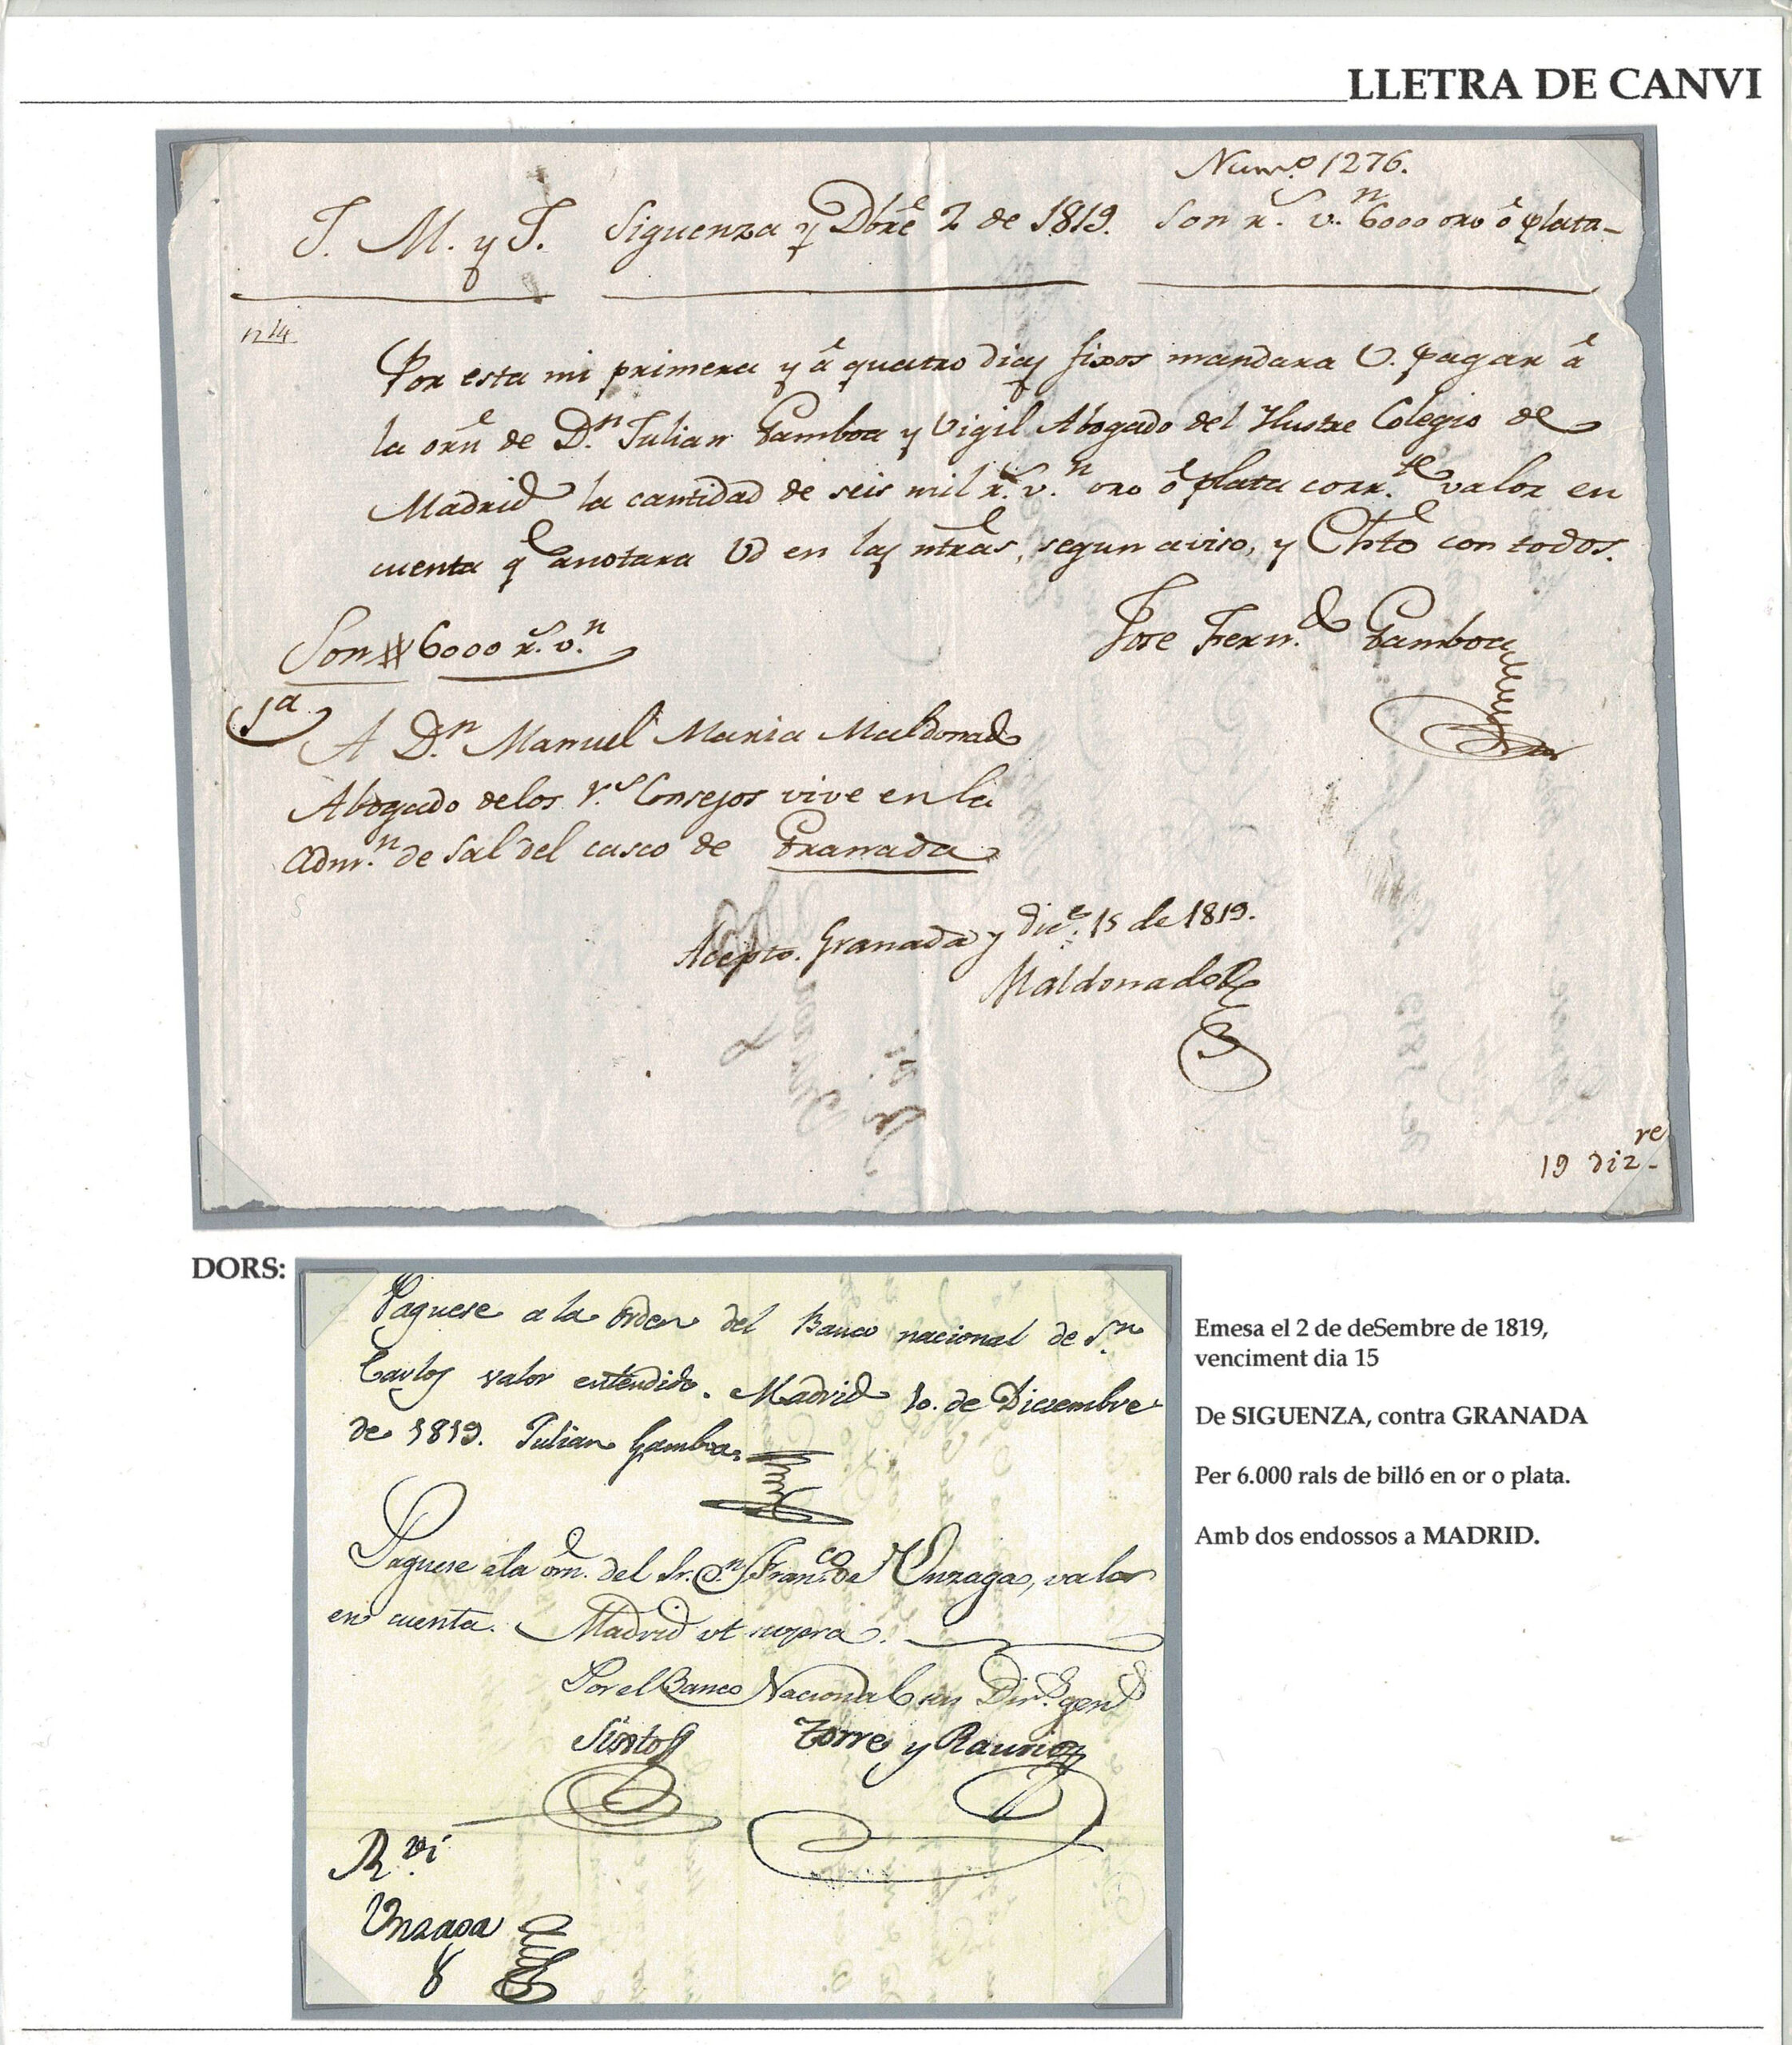 LLETRA DE CANVI
Num.o 1276.
J. M. y J. Siguenza y Dbre 2 de 1819. Son r.s v.n 6000 oro ó plata-
n 14
Por esta mi primera y á quatro dias fixos mandara V. pagar á
la orn de D.n Julian Gamboa y Vigil Abogado del Ilustre Colegio de
Madrid la cantidad de seis mil r.s v.n oro ó plata corr.te valor en
cuenta q.e anotara Vd en las ntras, segun aviso, y Chto con todos.
Son # 6000 r.s v.n
Jose Fern.d Gamboa
1a
A D.n Manuel Maria Maldonado
Abogado de los r.s Consejos vive en la
Adm.n de Sal del casco de Granada
Acepto. Granada y dic.e 15 de 1819.
Maldonado
19 diz.re
DORS:
Paguese a la orden del Banco nacional de S.n
Carlos valor entendido. Madrid 10. de Diciembre
de 1819. Julian Gamboa
Paguese á la orn. del Sr. D.n Fran.co de Unzaga, valor
en cuenta. Madrid ut supra.
Por el Banco Nacional sus Dir.s gen.s
Sixto Torre y Rauri
R.vi
Unzaga
Emesa el 2 de deSembre de 1819,
venciment dia 15
De SIGUENZA, contra GRANADA
Per 6.000 rals de billó en or o plata.
Amb dos endossos a MADRID.